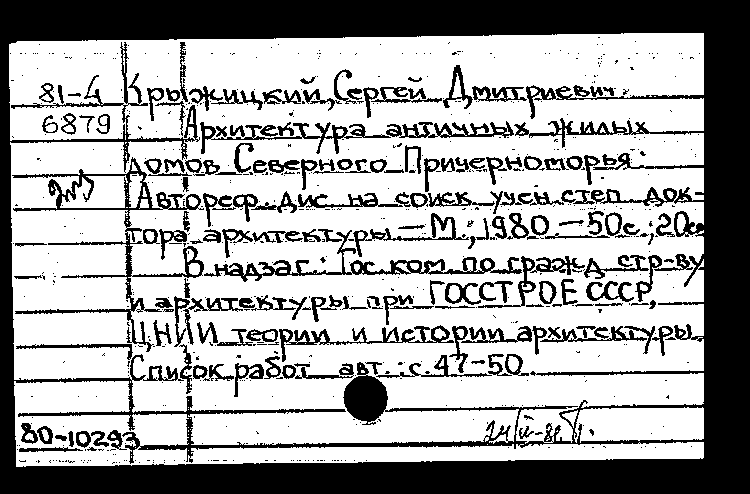 81-4 Крыжицкий, Сергей Дмитриевич.
6879 Архитектура античных жилых
домов Северного Причерноморья:
Автореф. дис на соиск учен. степ док-
тора архитектуры. — М., 1980. — 50с.; 20см
В надзаг.: Гос. ком. по гражд стр-ву
и архитектуры при ГОССТРОЕ СССР,
ЦНИИ теории и истории архитектуры.
Список работ авт.: с. 47-50
80-10293